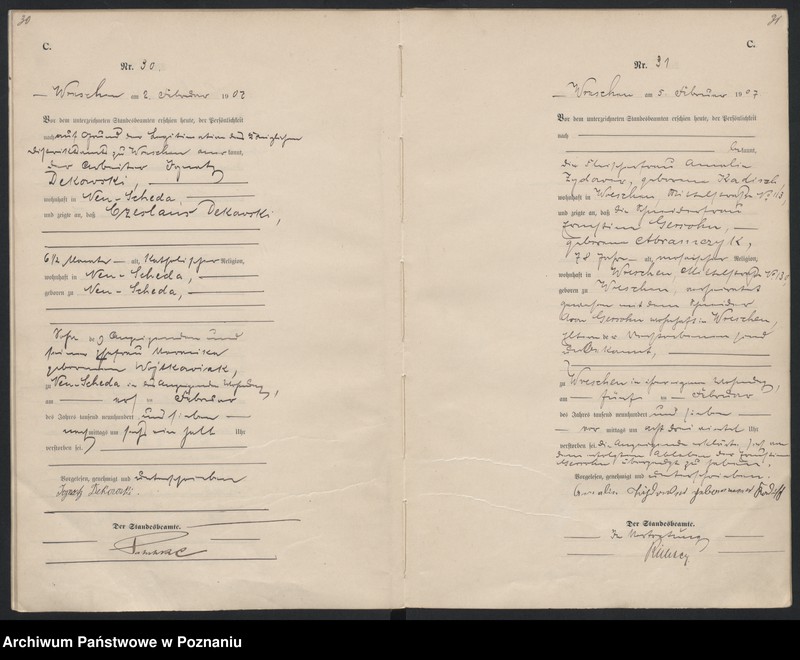 30
C.
Nr. 30.
Wreschen am 2. Februar 1907
Vor dem unterzeichneten Standesbeamten erschien heute, der Persönlichkeit
nach auf Grund der Legitimation des Königlichen
Distriktsamts zu Wreschen anerkannt,
der Arbeiter Ignatz
Dekowski,
wohnhaft in Neu-Scheda,
und zeigte an, daß Czeslaus Dekowski,
6 1/2 Monate alt, katholischer Religion,
wohnhaft in Neu-Scheda,
geboren zu Neu-Scheda,
Sohn des Anzeigenden und
seiner Ehefrau
geborenen
zu Neu-Scheda in des Anzeigenden Wohnung,
am Februar
des Jahres tausend neunhundert und sieben
nachmittags um ein halb Uhr
verstorben sei.
Vorgelesen, genehmigt und unterschrieben
Ignatz Dekowski.
Der Standesbeamte.
31
C.
Nr. 31
Wreschen am 5. Februar 1907
Vor dem unterzeichneten Standesbeamten erschien heute, der Persönlichkeit
nach
bekannt,
die Fleischerfrau Amalie
geborene Kadisch,
wohnhaft in Wreschen,
und zeigte an, daß die Schneiderfrau
Ernestine Gersohn,
geborene Abramczyk,
78 Jahre alt, mosaischer Religion,
wohnhaft in Wreschen,
geboren zu Wreschen, verheiratet
gewesen mit dem Schneider
Aron Gersohn wohnhaft in Wreschen,
Eltern der Verstorbenen sind
unbekannt,
zu Wreschen in ihrer eigenen Wohnung,
am fünf ten Februar
des Jahres tausend neunhundert und sieben
vor mittags um acht drei viertel Uhr
verstorben sei. Die Anzeigende erklärte, sich von
dem erfolgten Ableben der Ernestine
Gersohn überzeugt zu haben.
Vorgelesen, genehmigt und unterschrieben.
Amalie geborene Kadisch
Der Standesbeamte.
In Vertretung
Archiwum Państwowe w Poznaniu